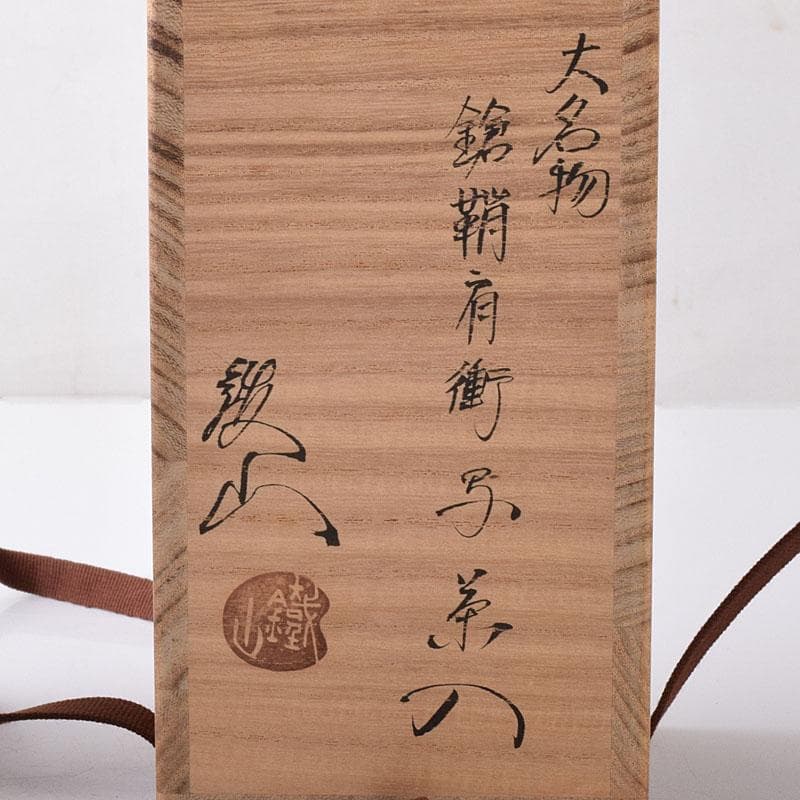 大名物
鎗鞘肩衝写茶入
鉄山
鐵山